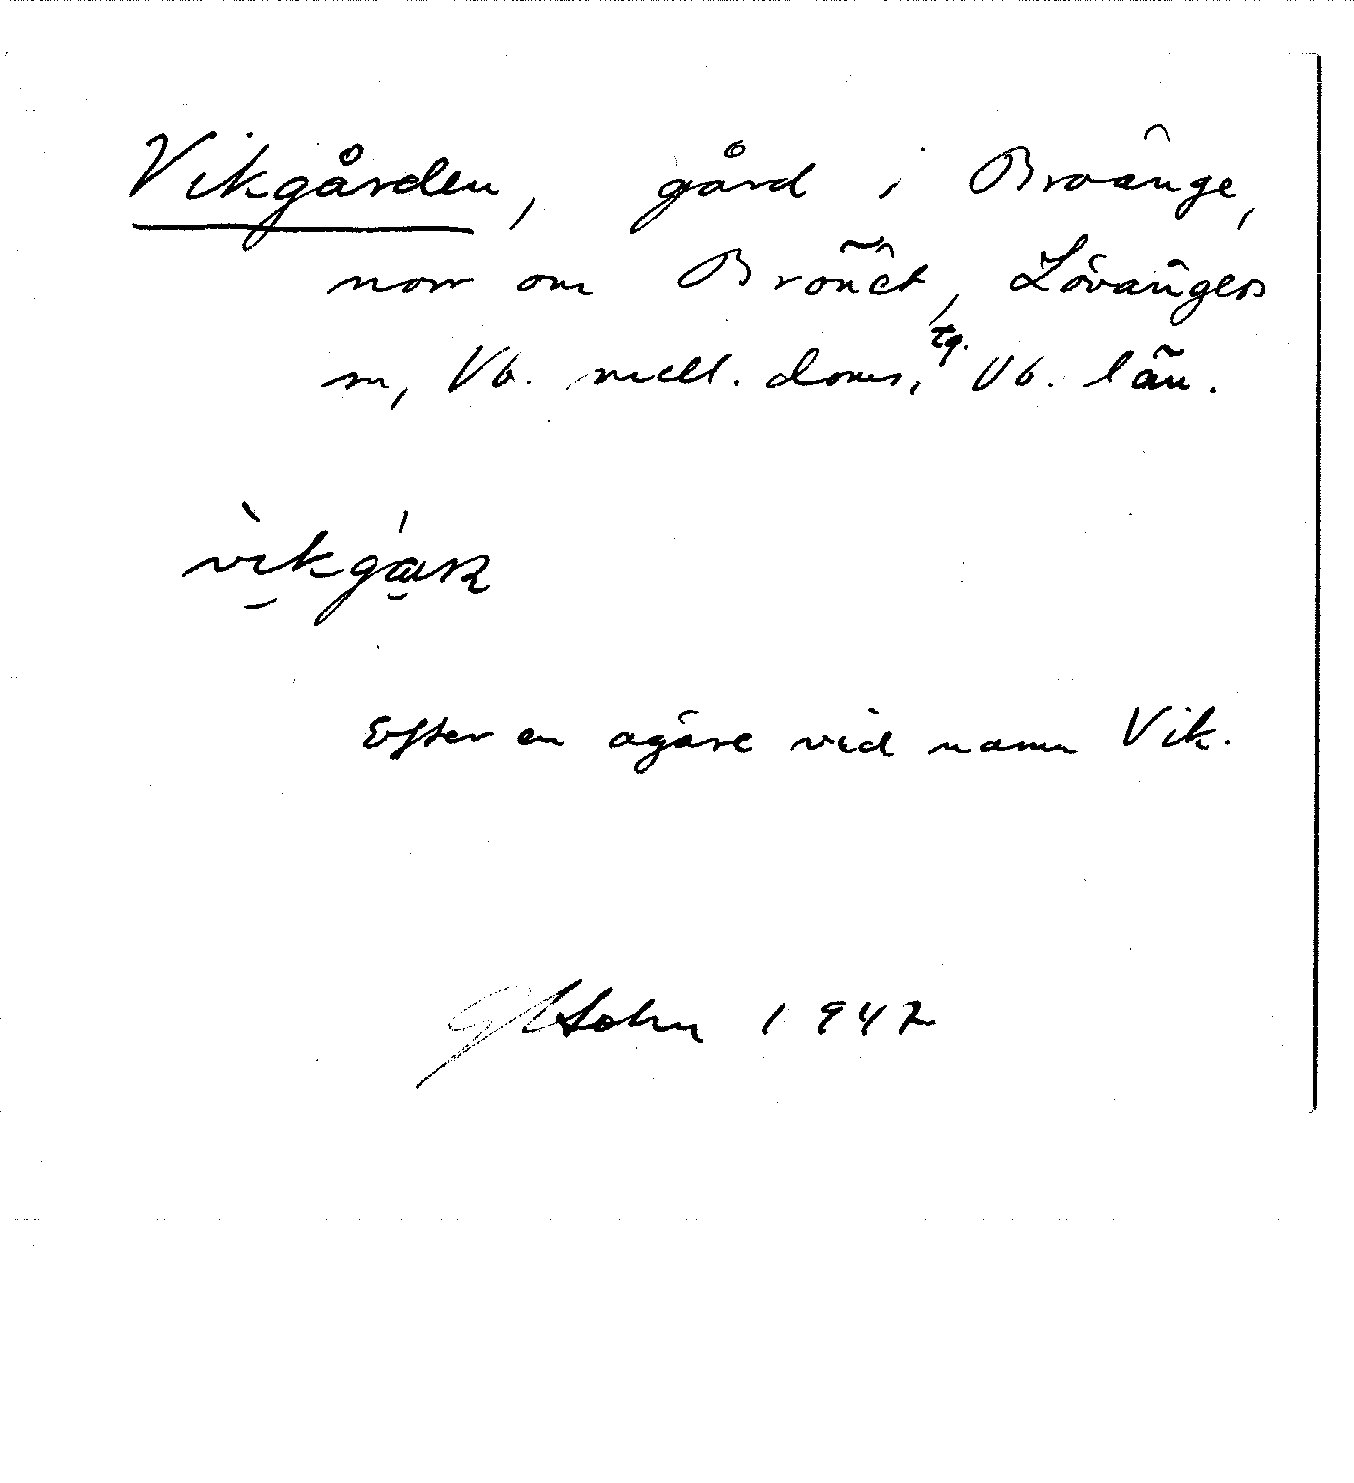 Vikgården, gård i Broänge,
norr om Brönet, Lövångers
sn, Vb. mell. doms. tg. Vb. län.
Efter en ägare vid namn Vik.
Holm 1942